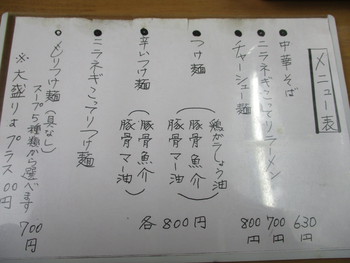 メニュー表
中華そば 630円
ニラネギこってりラーメン 700円
チャーシュー麺 800円
つけ麺
(鶏がらしょう油
豚骨魚介
豚骨マー油)
各800円
辛いつけ麺
(豚骨魚介
豚骨マー油)
ニラネギこってりつけ麺
※もりつけ麺(具なし) 700円
スープ5種類から選べます
※大盛りはプラス100円